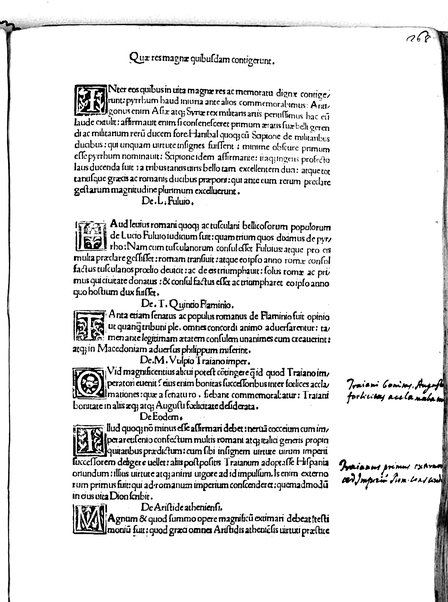 268
Quæ res magnæ quibusdam contigerunt.
INter eos quibus in uita magnæ res ac memoratu dignæ contige/
runt: pyrrhum haud iniuria ante alios commemorabimus: Anti
gonus enim Asiæ atq; Syriæ rex militaris artis peritissimus hac eū
laude extulit: affirmauit enim si consenesceret primum ætatis suæ belli geren
di ac militarium rerū ducem fore. Hanibal quoq; cū Scipione de militaribus
ducibus: qui unquam uirtute insignes fuissent: minime obscure primum
esse pyrrhum nominauit: Scipione idem affirmante: itaq; ingens profecto
laus ducenda fuit: a tribus tantis uiris bello tam excellentem dua: atque tot
tantisque græcis ac romanis ducibus præponi: qui ante cum rerum præclare
gestarum magnitudine plurimum excelluerunt.
De. L. Fuluio.
HAud leuius romani quoq; ac tusculani bellicosorum populorum
de Lucio Fuluio iudicium fuit: quam trium quos diximus de pyr/
rho: Nam cum tusculanorum consul esset Fuluius: atque pro eis
multa præclare gessisset: romam transiuit: atque eo ipso anno romæ consul
factus tusculanos prœlio deuicit: ac de eis triumphauit: solus romæ ac pri/
mus qui ciuitate donatus: & consul factus esset ac triumpharet eo ipso anno
quo hostium dux fuisset.
De. T. Quintio Flaminio.
TAnta etiam senatus ac populus romanus de Flaminio fuit opinio
ut quanq; tribuni ple. omnes concordi animo aduersarentur: ta/
men ante legitimam ætatem consulem unanimes eum creauerint:
atq; in Macedoniam aduersus philippum miserint.
De. M. Vulpio Traiano imper.
QVid magnificentius alicui potest cōtingere q̄ id quod Traiano im/
peratori euenit? eius enim bonitas successoribus inter fœlices accla
mationes: quæ a senatu ro. fiebant commemorabatur: Traiani
bonitate in aliis atq; atq; Augusti fœlicitate desiderata.
De Eodem.
ILlud quoq; nō minus esse affirmari debet: nerua cocceium cum im/
peraret senio confectum multis romani atq; italici generis propi
quitatibus præditum: cum sibi insignem uirtute uirum imperii
successorem deligere uellet: aliis postpositis Traianum adoptasse Hispania
oriundum: illius uirtute atq; animi uigore ad id impulsum. Is enim externo
rum primus fuit: qui ad romanum imperium conscenderet: quemadmodū
in eius uita Dion scribit.
De Aristide atheniensi.
MAgnum & quod summo opere magnificū existimari debeat testi
moniū fuit: quod græci omnes Aristidis atheniēsis uirtuti præstite
Traiani bonitas. Augusti
foelicitas acclamata
Traianus primus externo
ad Imperiū Rom.